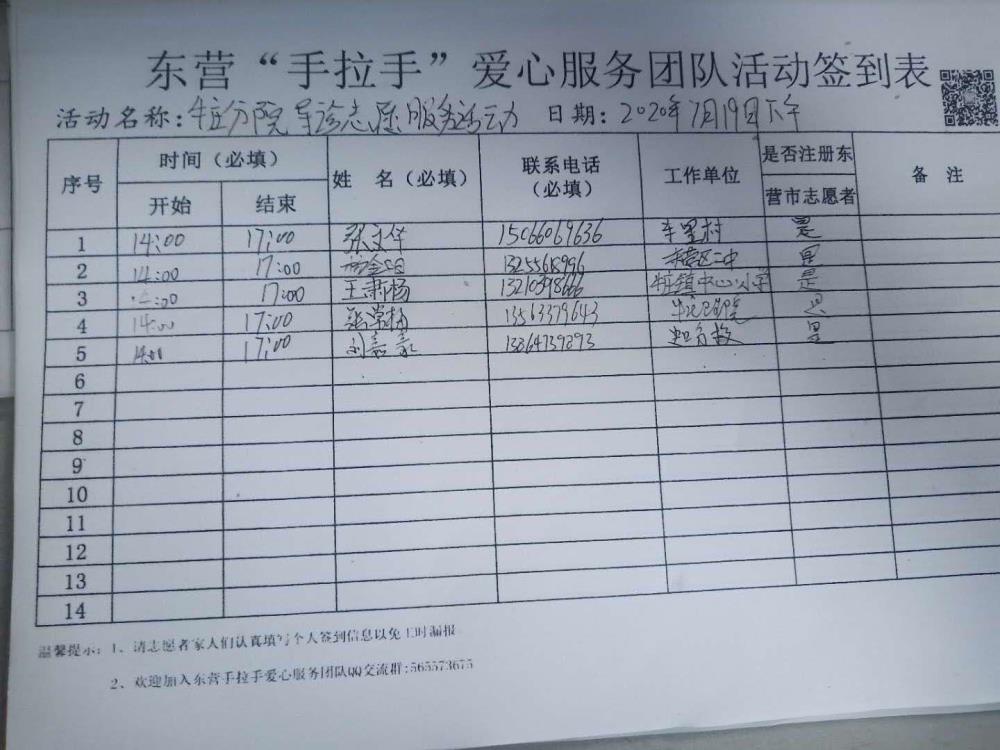 东营“手拉手”爱心服务团队活动签到表
活动名称：牛庄分院导诊志愿服务活动 日期：2020年7月19日下午
序号 时间（必填） 姓 名（必填） 联系电话（必填） 工作单位 是否注册东营市志愿者 备 注
开始 结束
1 14:00 17:00 张文华 15066069636 车里村 是
2 14:00 17:00 13255618996 二中 是
3 14:00 17:00 王肃杨 13210398666 牛庄镇中心小学 是
4 14:00 17:00 13563379643 是
5 14:00 17:00 刘嘉豪 13864739893 是
6
7
8
9
10
11
12
13
14
温馨提示：1、请志愿者家人们认真填写个人签到信息以免工时漏报
2、欢迎加入东营手拉手爱心服务团队QQ交流群:565573675